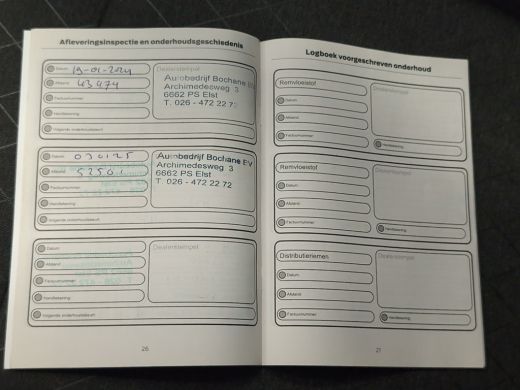 Afleveringsinspectie en onderhoudsgeschiedenis
Datum 19-01-2024
Afstand 43474
Factuurnummer
Handtekening
Volgende onderhoudsbeurt
Dealerstempel
Autobedrijf Bochane
Archimedesweg 3
6662 PS Elst
T. 026 - 472 22 72
Datum 030125
Afstand
Factuurnummer
Handtekening
Volgende onderhoudsbeurt
Autobedrijf Bochane BV
Archimedesweg 3
6662 PS Elst
T. 026 - 472 22 72
Datum
Afstand
Factuurnummer
Handtekening
Volgende onderhoudsbeurt
Dealerstempel
26
Logboek voorgeschreven onderhoud
Remvloeistof
Dealerstempel
Datum
Afstand
Factuurnummer
Handtekening
Remvloeistof
Dealerstempel
Datum
Afstand
Factuurnummer
Handtekening
Distributieriemen
Dealerstempel
Datum
Afstand
Factuurnummer
Handtekening